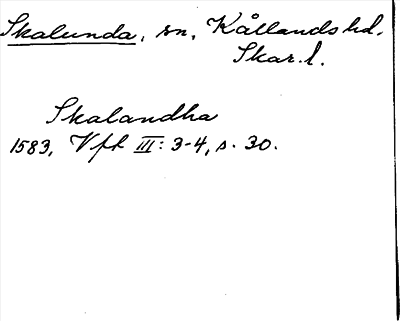 Skalunda, sn, Kållands hd.
Skar. l.
Skalandha
1583, Vft III: 3-4, s. 30.